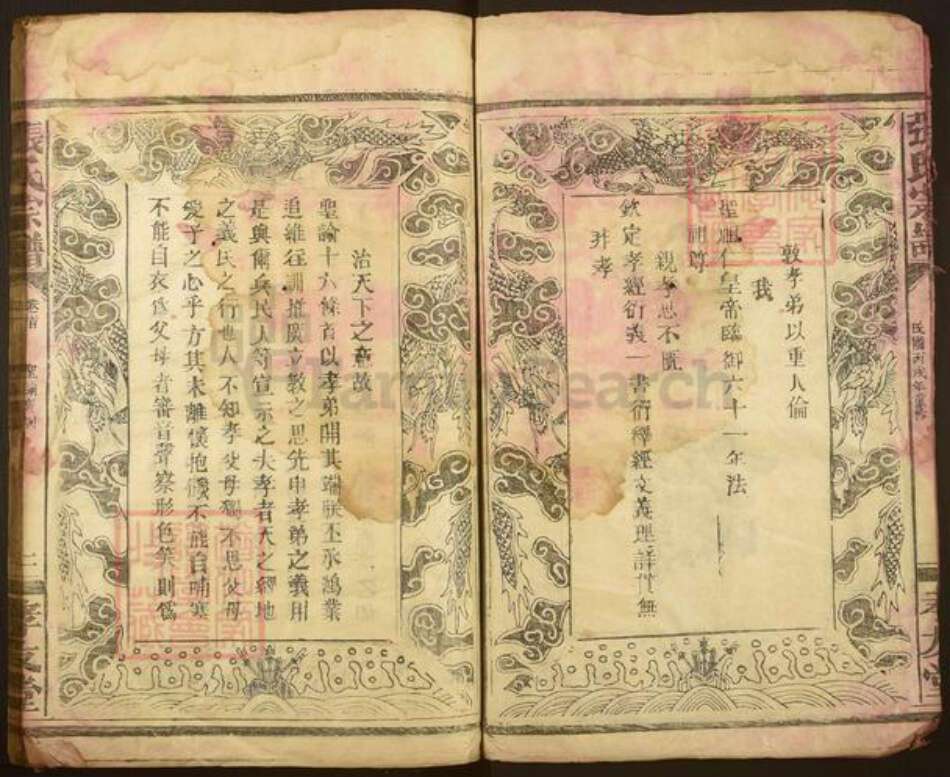 敦孝弟以重人倫
我
聖祖仁皇帝臨御六十一年法
祖尊
親孝思不匱
欽定孝經衍義一書衍釋經文義理詳貫無
非孝
治天下之意故
聖諭十六條首以孝弟開其端朕丕承鴻業
追維往訓推廣立教之思先申孝弟之義用
是與爾兵民人等宣示之夫孝者天之經地
之義民之行也人不知孝父母獨不思父母
愛子之心乎方其未離懷抱饑不能自哺寒
不能自衣為父母者審音聲察形色笑則為
張氏宗譜
卷首
張氏宗譜
FamilySearch